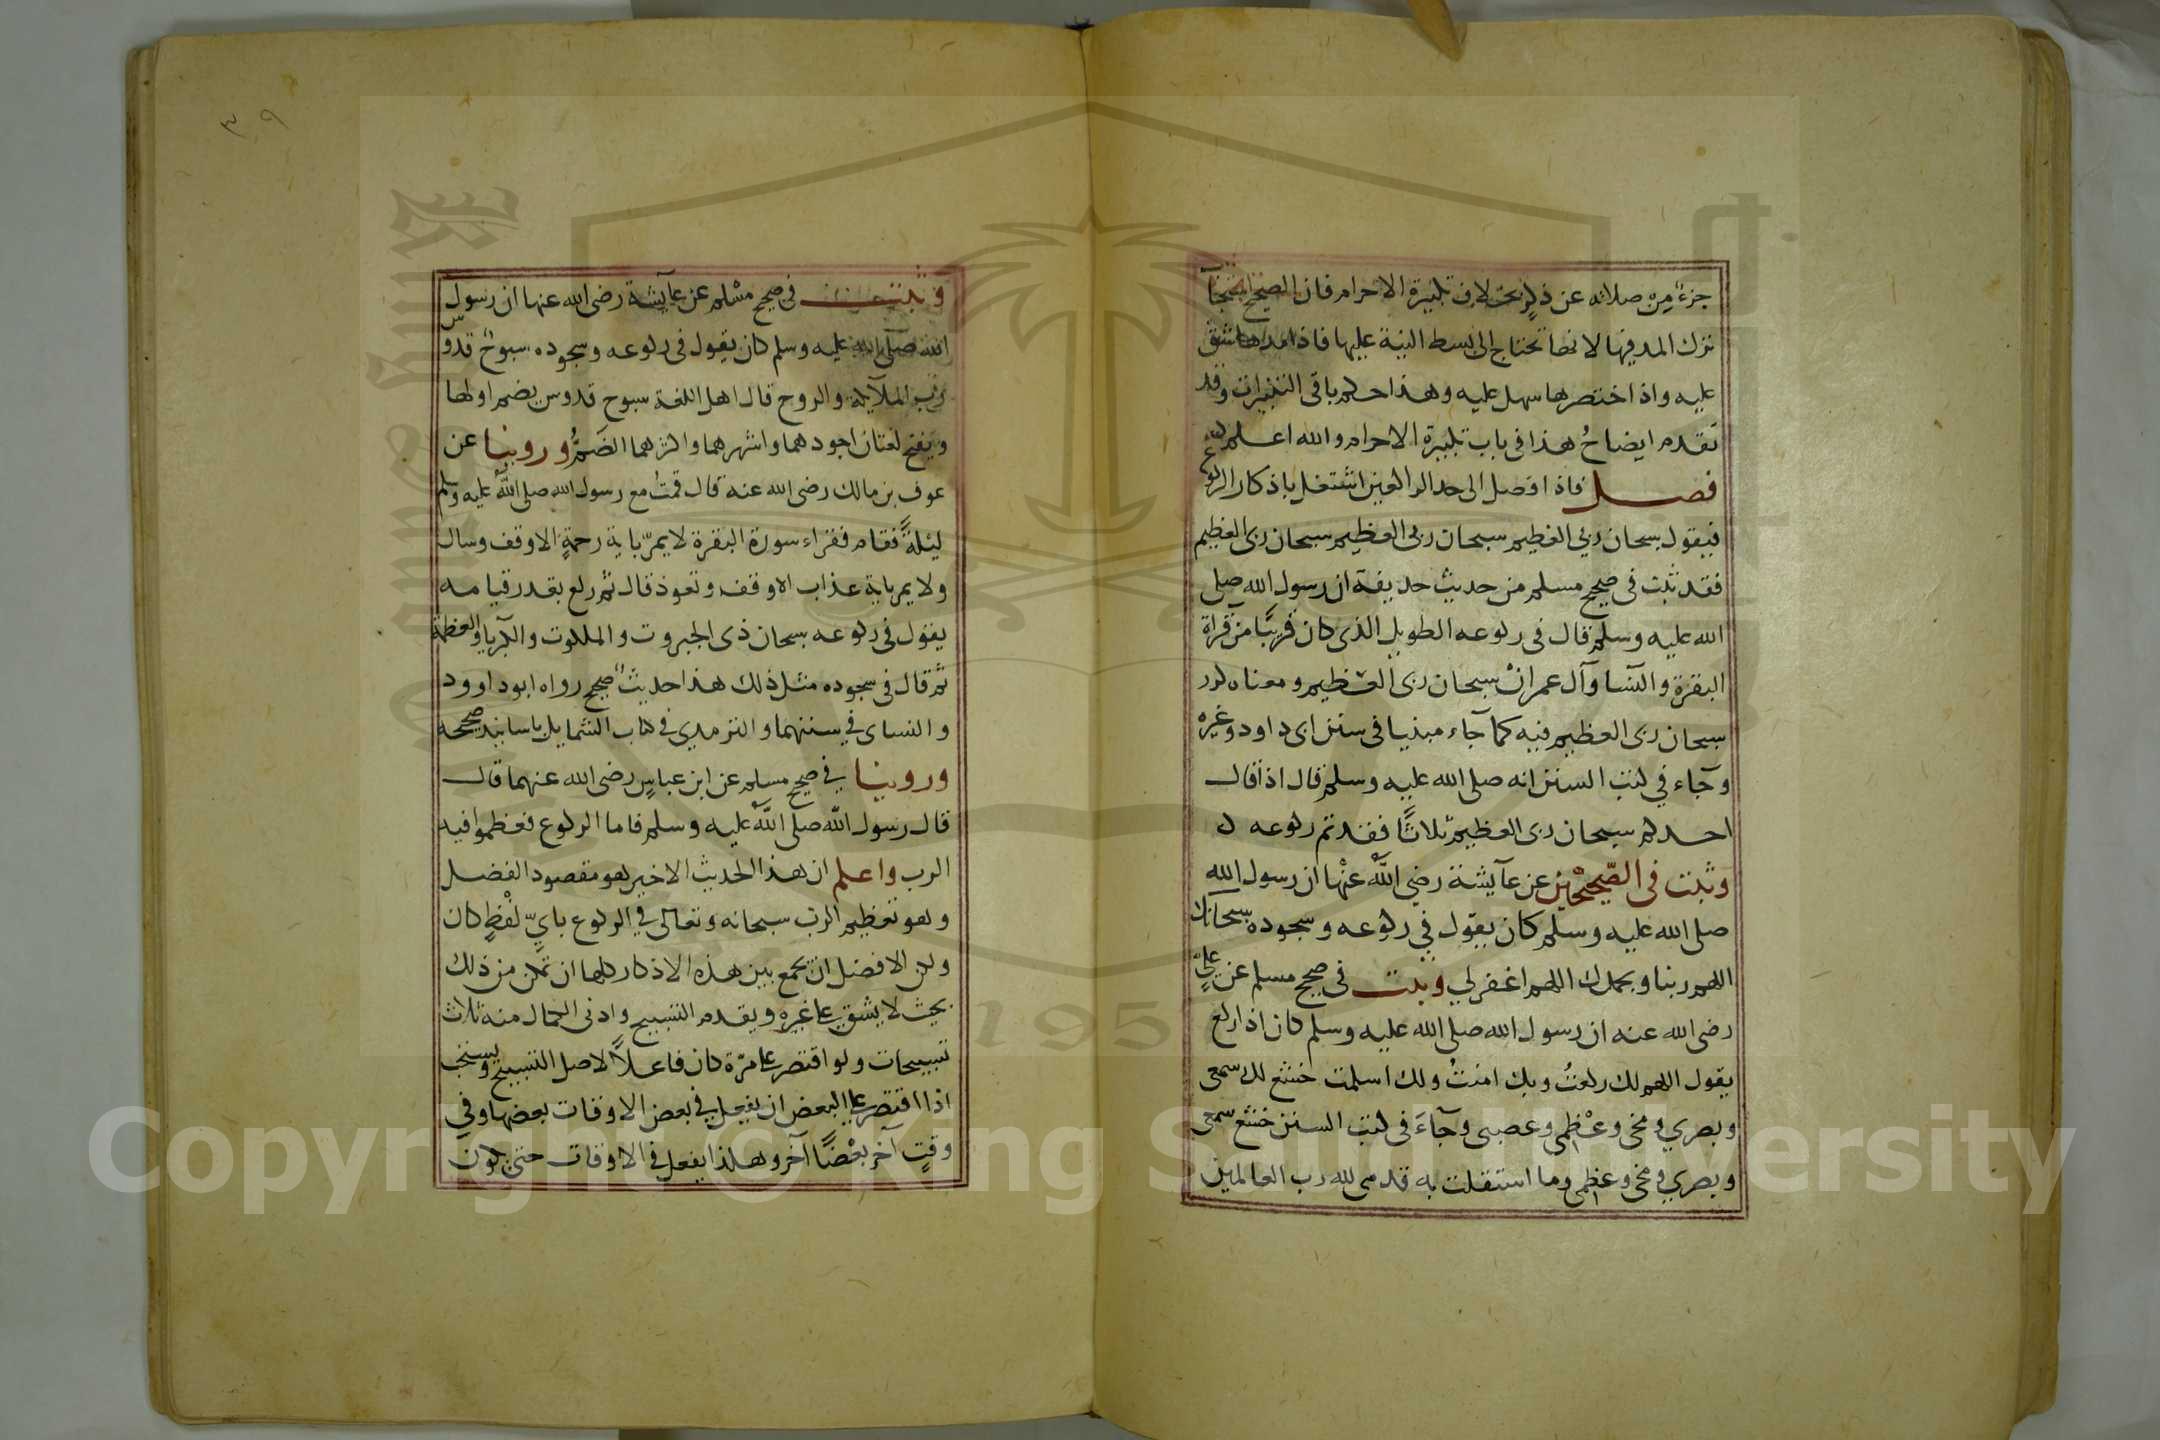 جزء من صلاته عن ذكر بخلاف تكبيرة الاحرام فان الصحيح استحباب
ترك المد فيها لانها تحتاج الى بسط النية عليها فاذا مدها شق
عليه واذا اختصرها سهل عليه وهذا حكم باقي التكبيرات وقد
تقدم ايضاح هذا في باب تكبيرة الاحرام والله اعلم
فصل فاذا وصل الى حد الراكعين اشتغل باذكار الركوع
فيقول سبحان ربي العظيم سبحان ربي العظيم سبحان ربي العظيم
فقد ثبت في صحيح مسلم من حديث حذيفة ان رسول الله صلى
الله عليه وسلم قال في ركوعه الطويل الذي كان قريبًا من قراة
البقرة والنسا وآل عمران سبحان ربي العظيم ومعناه كرر
سبحان ربي العظيم فيه كما جآء مبنيا في سنن ابي داود وغيره
وجاء في كتب السنن انه صلى الله عليه وسلم قال اذا قال
احدكم سبحان ربي العظيم ثلاثًا فقد تم ركوعه
وثبت في الصحيحين عن عآيشة رضي الله عنها ان رسول الله
صلى الله عليه وسلم كان يقول في ركوعه وسجوده سبحانك
اللهم ربنا وبحمدك اللهم اغفرلي وثبت في صحيح مسلم عن علي
رضي الله عنه ان رسول الله صلى الله عليه وسلم كان اذا ركع
يقول اللهم لك ركعتُ وبك امنتُ ولك اسلمت خشع لك سمعي
وبصري ومخي وعظمي وعصبي وجآءَ في كتب السنن خشع سمعي
وبصري ومخي وعظمي وما استقلت به قدمي لله رب العالمين
٣٩
وثبت في صحيح مسلم عن عآيشة رضي الله عنها ان رسول
الله صلى الله عليه وسلم كان يقول في ركوعه وسجوده سبوح قدوس
رب الملآيكة والروح قال اهل اللغة سبوح قدوس بضم اولها
ويفتح لغتان اجودهما واشهرهما واكثرهما الضم وروينا عن
عوف بن مالك رضي الله عنه قال قمت مع رسول الله صلى الله عليه وسلم
ليلةً فقام فقراء سورة البقرة لا يمرّ باية رحمةٍ الا وقف وسال
ولا يمر باية عذاب الا وقف وتعوذ قال ثم ركع بقدر قيامه
يقول في ركوعه سبحان ذي الجبروت والملكوت والكبريا والعظمة
ثم قال في سجوده مثل ذلك هذا حديث صحيح رواه ابو داوود
والنساى في سننهما والترمذي في كتاب الشمايل باسانيد صحيحه
وروينا في صحيح مسلم عن ابن عباسٍ رضي الله عنهما قال
قال رسول الله صلى الله عليه وسلم فاما الركوع فعظموا فيه
الرب واعلم ان هذا الحديث الاخير هو مقصود الفضل
وهو تعظيم الرب سبحانه وتعالى في الركوع بايّ لفظٍ كان
ولكن الافضل ان يجمع بين هذه الاذكار كلها ان تمكن من ذلك
بحيث لا يشق على غيره ويقدم التسبيح وادنى الكمال منه ثلاث
تسبيحات ولو اقتصر على مرّة كان فاعلاً لاصل التسبيح ويستحب
اذا اقتصر على البعض ان يفعل في بعض الاوقات بعضها وفي
وقتٍ آخر بعضًا آخر وهكذا يفعل في الاوقات حتى يكون
Copyright © King Saud University
King Saud University
1957